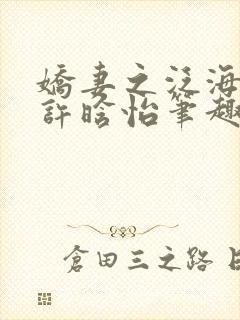 嬌妻之泛海
許晗怡筆趣
倉田三之路